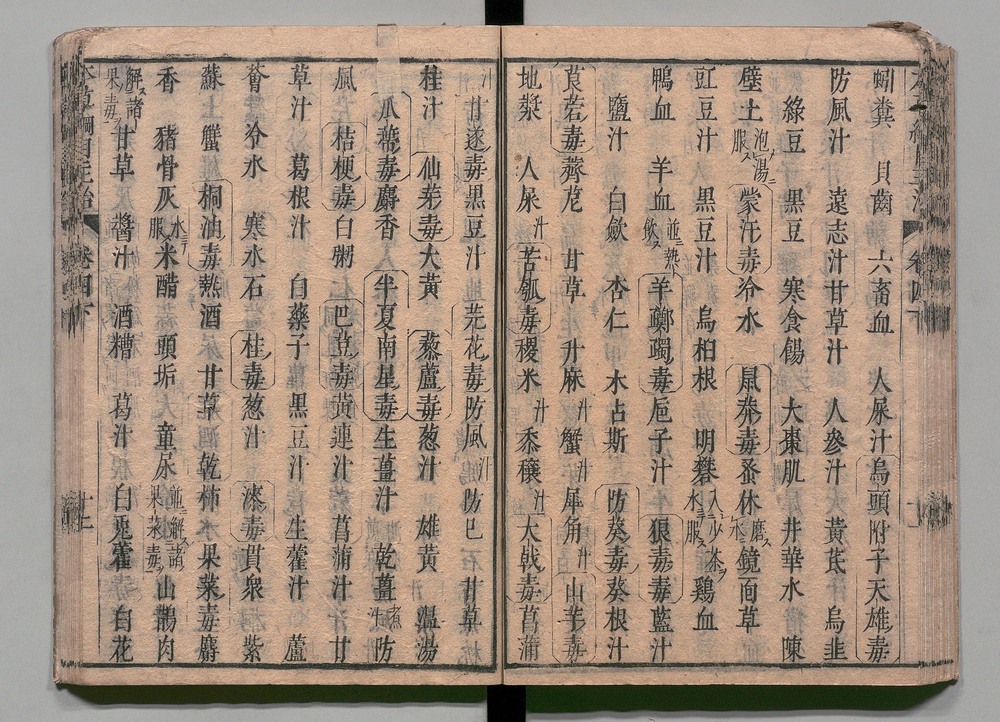 蚓糞　貝齒　六畜血　人屎汁　烏頭附子天雄毒
防風汁　遠志汁　甘草汁　人參汁　黃芪　烏韭
綠豆　黑豆　寒食餳　大棗肌　井華水　陳
壁土泡湯服　蒙汗毒冷水　鼠莽毒蚤休磨水　鏡面草
豇豆汁　黑豆汁　烏桕根　明礬入少茶水服　雞血
鴨血　羊血並熱飲　羊躑躅毒巵子汁　狼毒毒藍汁
鹽汁　白歛　杏仁　木占斯　防葵毒葵根汁
莨菪毒薺苨　甘草　升麻汁　蟹汁　犀角汁　山芋毒
地漿　人屎汁　苦瓠毒稷米汁　黍穰汁　大戟毒菖蒲
汁　甘遂毒黑豆汁　芫花毒防風汁　防巳　甘草
桂汁　仙茅毒大黃　藜蘆毒葱汁　雄黃　溫湯
瓜蒂毒麝香　半夏南星毒生薑汁　乾薑煮汁　防
風　桔梗毒白粥　巴豆毒黃連汁　菖蒲汁　甘
草汁　葛根汁　白藥子　黑豆汁　生藿汁　蘆
薈　冷水　寒水石　桂毒葱汁　漆毒貫衆　紫
蘇　蟹　桐油毒熱酒　甘草　乾柿　水果菜毒麝
香　豬骨灰水服　米醋　頭垢　童尿並解諸果菜毒　山鵲肉
解諸果毒　甘草　醬汁　酒糟　葛汁　白兎藿　白花
本草綱目主治　卷四下　十二